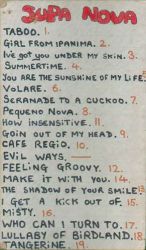 SUPA NOVA
TABOO. 1.
GIRL FROM IPANIMA. 2.
I'VE GOT YOU UNDER MY SKIN. 3.
SUMMERTIME. 4.
YOU ARE THE SUNSHINE OF MY LIFE. 5
VOLARE. 6.
SERANADE TO A CUCKOO. 7.
PEQUENO NOVA. 8.
HOW INSENSITIVE. 11.
GOIN OUT OF MY HEAD. 9.
CAFE REGIO. 10.
EVIL WAYS. —
FEELING GROOVY. 12.
MAKE IT WITH YOU. 14.
THE SHADOW OF YOUR SMILE 13
I GET A KICK OUT OF. 15
MISTY. 16.
WHO CAN I TURN TO. 17
LULLABY OF BIRDLAND. 18
TANGERINE. 19.